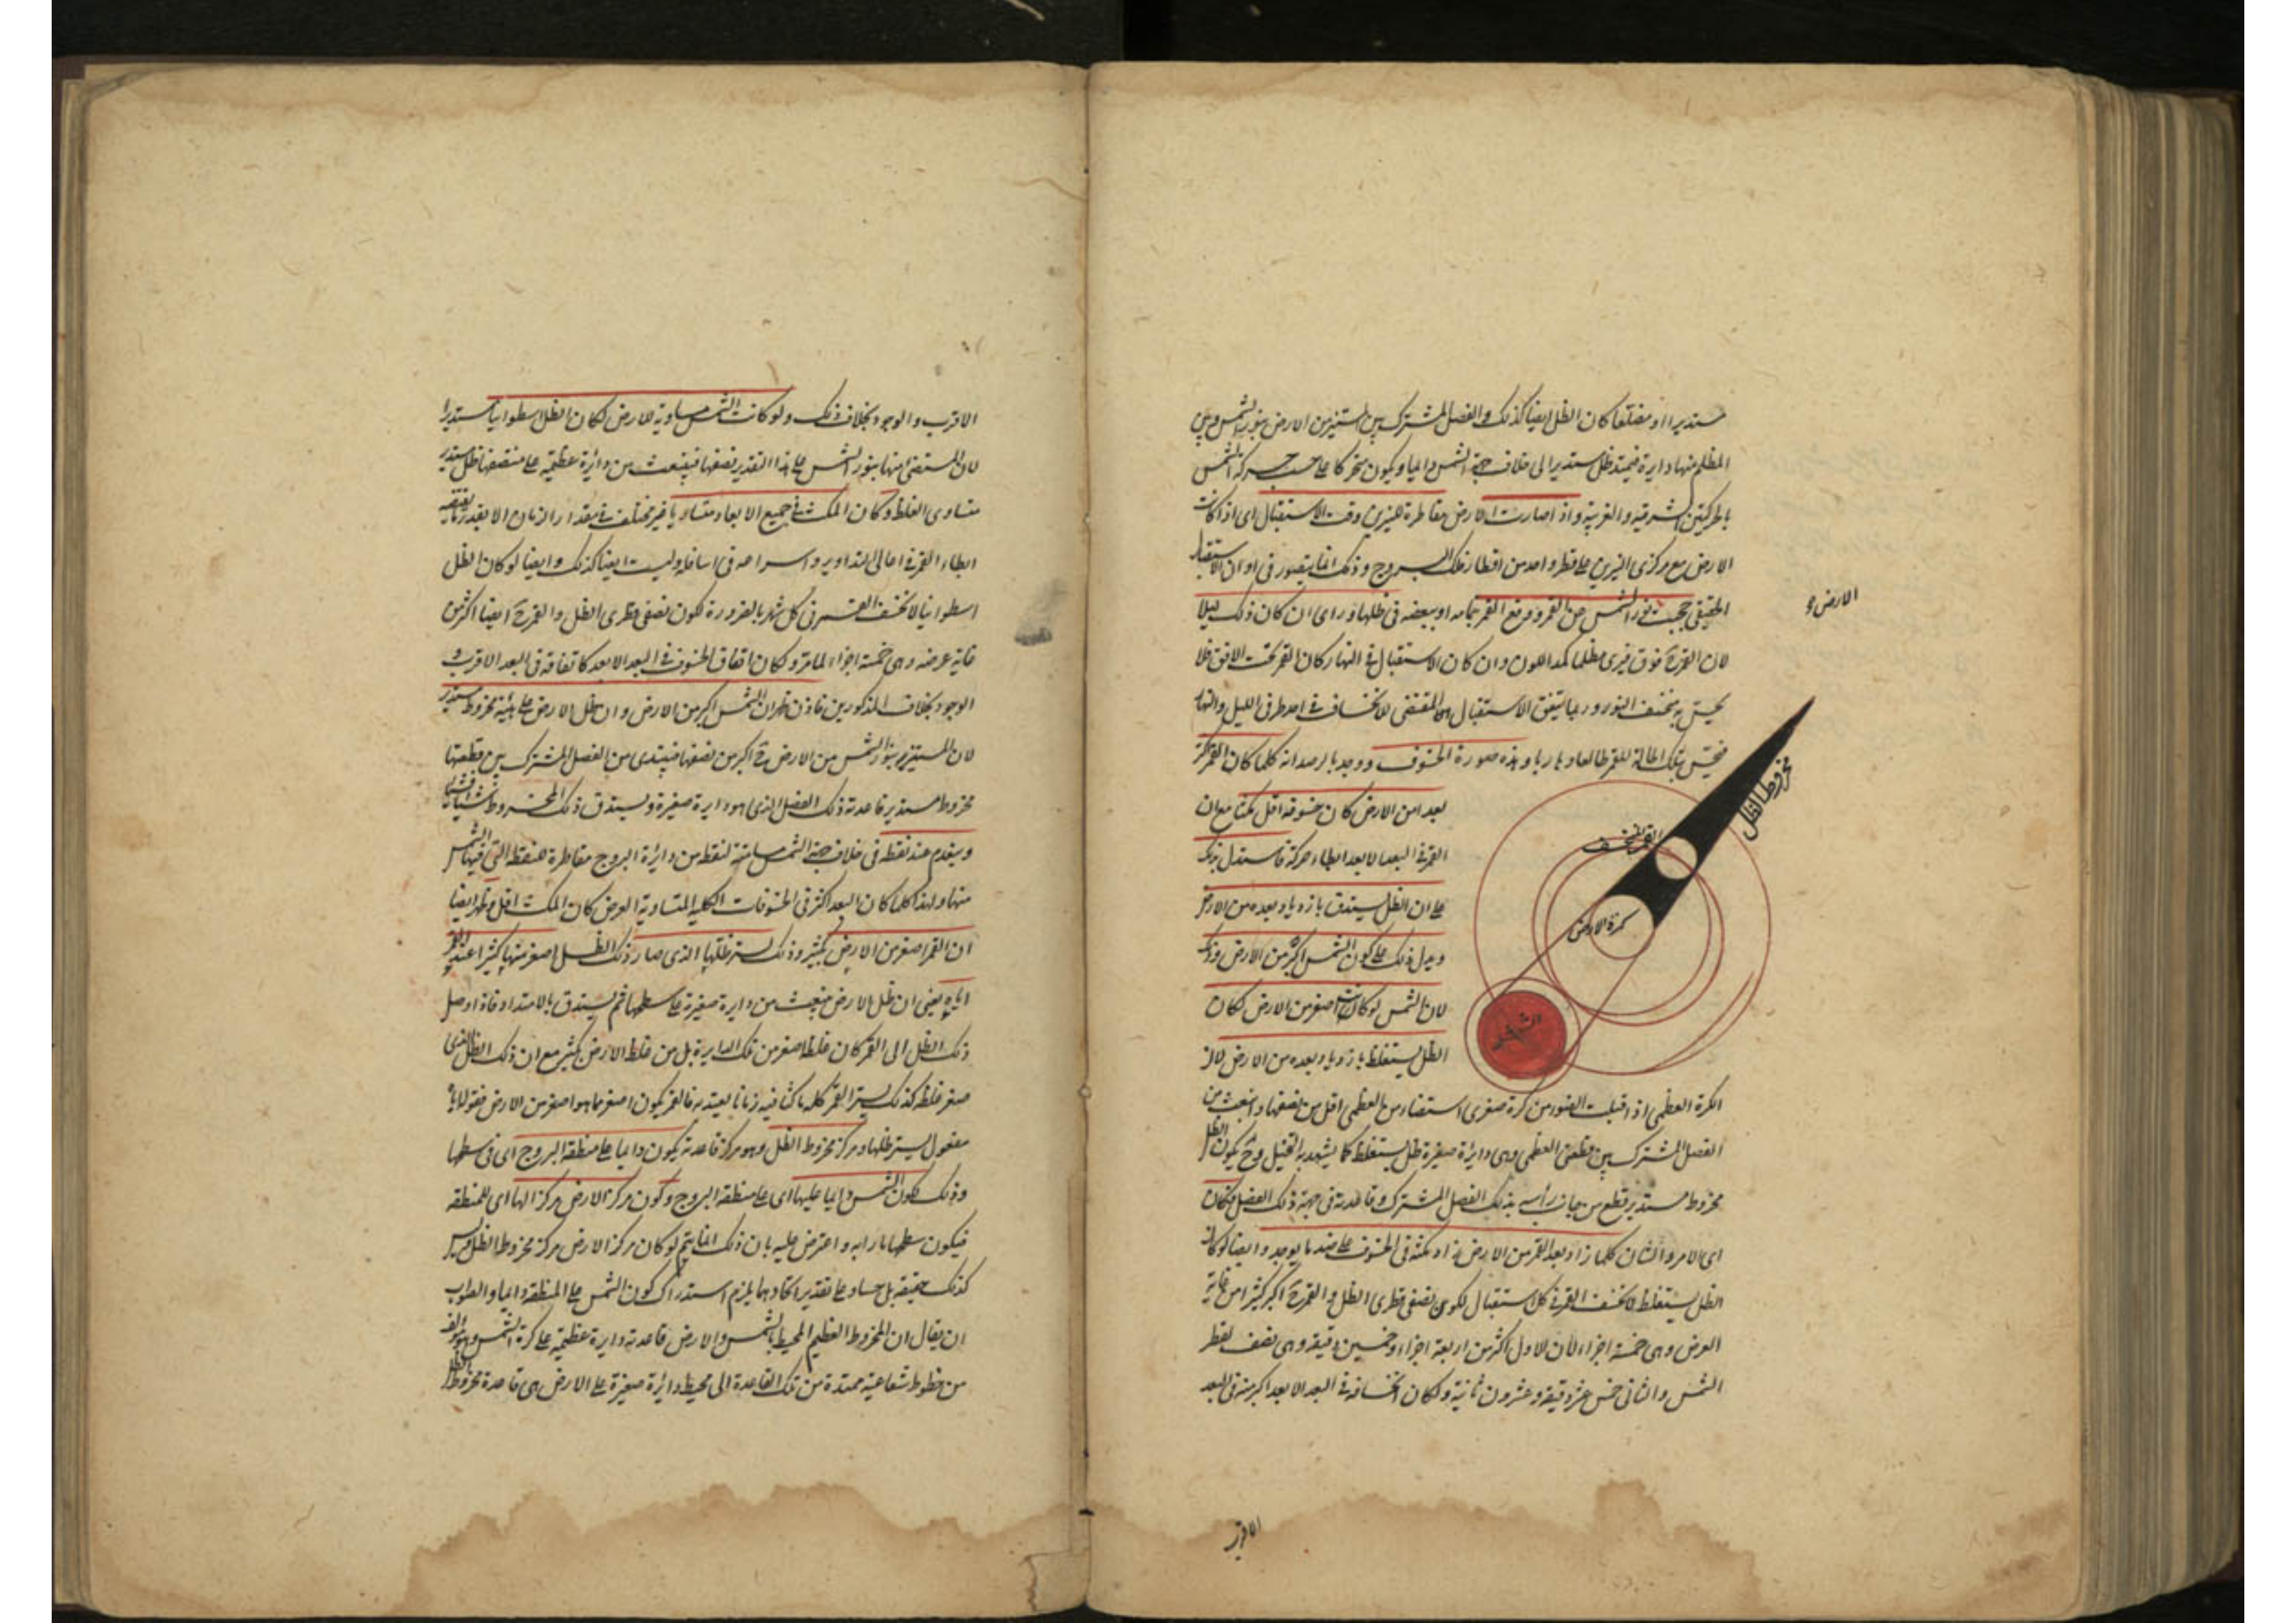 مستديرا او مضلعا كان الظل ايضا كذلك والفصل المشترك بين المستنير من الارض بنور الشمس وبين
المظلم منها دايرة فيمتد ظل مستديرا الى خلاف جهة الشمس دايما ويكون متحركا على حسب حركة الشمس
بالحركتين الشرقية والغربية واذا صارت الارض مقاطرة للنيرين وقت الاستقبال اى اذا كانت
الارض مع مركزى النيرين على قطر واحد من اقطار فلك البروج وذلك انما يتصور فى اوان الاستقبال
الحقيقى حجبت نور الشمس عن القمر ووقع القمر بتمامه او ببعضه فى ظلها ورأى ان كان ذلك ليلا
الارض
لان القمر ح فوق فيرى مظلما كمد اللون وان كان الاستقبال فى النهار كان القمر تحت الافق فلا
يحس به منخسف النور وربما يتفق الاستقبال المقتضى للانخساف فى احد طرفى الليل والنهار
فيحس بتلك الحالة للقمر طالعا وغاربا وهذه صورة الخسوف ووجد بالرصد انه كلما كان القمر اكثر
بعدا من الارض كان خسوفه اقل مكثا مع ان
القمر فى البعد الابعد ابطاء حركة فاستدل بذلك
على ان الظل يستدق بازدياد بعده من الارض
ويدل ذلك على كون الشمس اكبر من الارض وذلك
لان الشمس لو كانت اصغر من الارض لكان
الظل يستغلظ بازدياد بعده من الارض لان
مخروط الظل
القمر المنخسف
كرة الارض
الشمس
الكرة العظمى اذا قبلت الضوء من كرة صغرى استضاء من العظمى اقل من نصفها وانبعث من
الفصل المشترك بين قطعتى العظمى وهى دائرة صغيرة ظل يستغلظ كما يشهد به التخيل وح يكون الظل
مخروط مستدير قطع من جانب رأسه بذلك الفصل المشترك وقاعدته فى جهة ذلك الفضل فكان
اى الامر والشان كلما زاد بعد القمر من الارض زاد مكثه فى الخسوف على ضد ما يوجد وايضا لو كان
الظل يستغلظ لانخسف القمر فى كل استقبال لكون نصفى قطرى الظل والقمر ح اكبر كثيرا من غاية
العرض وهى خمسة اجزاء لان الاول اكثر من اربعة اجزاء وخمسين دقيقة وهى نصف قطر
الشمس والثانى خمس عشر دقيقة وعشرون ثانية ولكان انخسافه فى البعد الابعد اكبر منه فى البعد
الاقرب
الاقرب والوجود بخلاف ذلك ولو كانت الشمس مساوية للارض لكان الظل اسطوانيا مستديرا
لان المستضئ منها بنور الشمس على هذا التقدير نصفها فينبعث من دائرة عظيمة على منتصفها ظل مستدير
متساوى الغلظ وكان المكث فى جميع الابعاد متساويا غير مختلف فى مقدار الزمان الا بقدر ما يقتضيه
ابطاء القمر فى اعالى التداوير واسراعه فى اسافله وليست ايضا كذلك وايضا لو كان الظل
اسطوانيا لانخسف القمر فى كل شهر بالضرورة لكون نصفى قطرى الظل والقمر ح ايضا اكثر من
غاية عرضه وهى خمسة اجزاء لما مر ولكان اتفاق الخسوف فى البعد الابعد كاتفاقه فى البعد الاقرب و
الوجود بخلاف المذكورين فاذن ظهر ان الشمس اكبر من الارض وان ظل الارض على هيئة مخروط مستدير
لان المستنير بنور الشمس من الارض ح اكبر من نصفها فيبتدى من الفصل المشترك بين قطعتها
مخروط مستدير قاعدته ذلك الفصل الذى هو دايرة صغيرة ويستدق ذلك المخروط شيئا فشيئا
وينعدم عند نقطة فى خلاف جهة الشمس مسامتة لنقطة من دائرة البروج مقاطرة للنقطة التى فيها الشمس
منها ولهذا كلما كان البعد اكثر فى الخسوفات الكلية المتساوية العرض كان المكث اقل وظهر ايضا
ان القمر اصغر من الارض بكثير وذلك لستر ظلها الذى صار ذلك الظل اصغر منها كثيرا عند القمر
اياه يعنى ان ظل الارض منبعث من دايرة صغيرة على سطحها ثم يستدق بالامتداد فاذا وصل
ذلك الظل الى القمر كان غلظه اصغر من تلك الدايرة بل من غلظ الارض بكثير مع ان ذلك الظل الذى
صغر غلظه كذلك يستر القمر كله ماكثا فيه زمانا يعتد به فالقمر يكون اصغر مما هو اصغر من الارض فقوله اياه
مفعول يستر ظلها ومركز مخروط الظل وهو مركز قاعدته يكون دايما على منطقة البروج اى فى سطحها
وذلك لكون الشمس دايما عليها اى على منطقة البروج وكون مركز الارض مركزا لها اى للمنطقة
فيكون سطحها مارا به واعترض عليه بان ذلك انما يتم لو كان مركز الارض مركز مخروط الظل وليس
كذلك حقيقة بل حسا وعلى تقدير اتحادهما يلزم استدراك كون الشمس على المنطقة دايما والصواب
ان يقال ان المخروط العظيم المحيط بالشمس والارض قاعدته دايرة عظيمة على كرة الشمس وهو مؤلف
من خطوط شعاعية ممتدة من تلك القاعدة الى محيط دائرة صغيرة على الارض هى قاعدة مخروط الظل